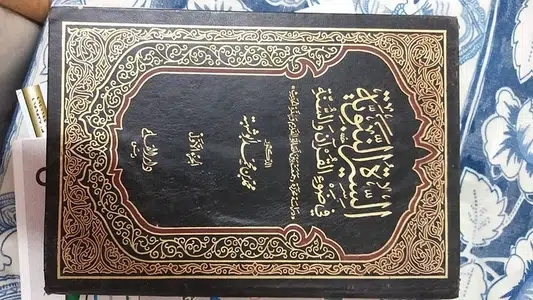 السيرة النبوية
في ضوء القرآن والسنة
الدكتور
محمد بن محمد أبو شهبة
الجزء الأول
دار القلم
دمشق